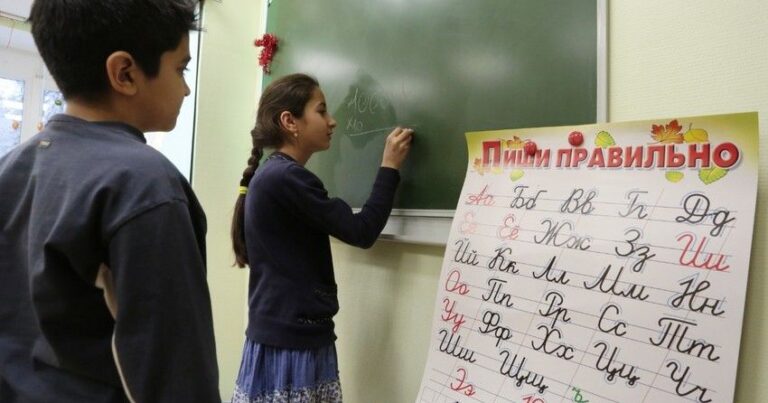 Пиши правильно
Аа Бб Вв Гг Дд
Ее Ёё Жж Зз Ии
Йй Кк Лл Мм Нн
Оо Пп Рр Сс Тт
Уу Фф Хх Цц Чч
Шш Щщ ъ
Ээ